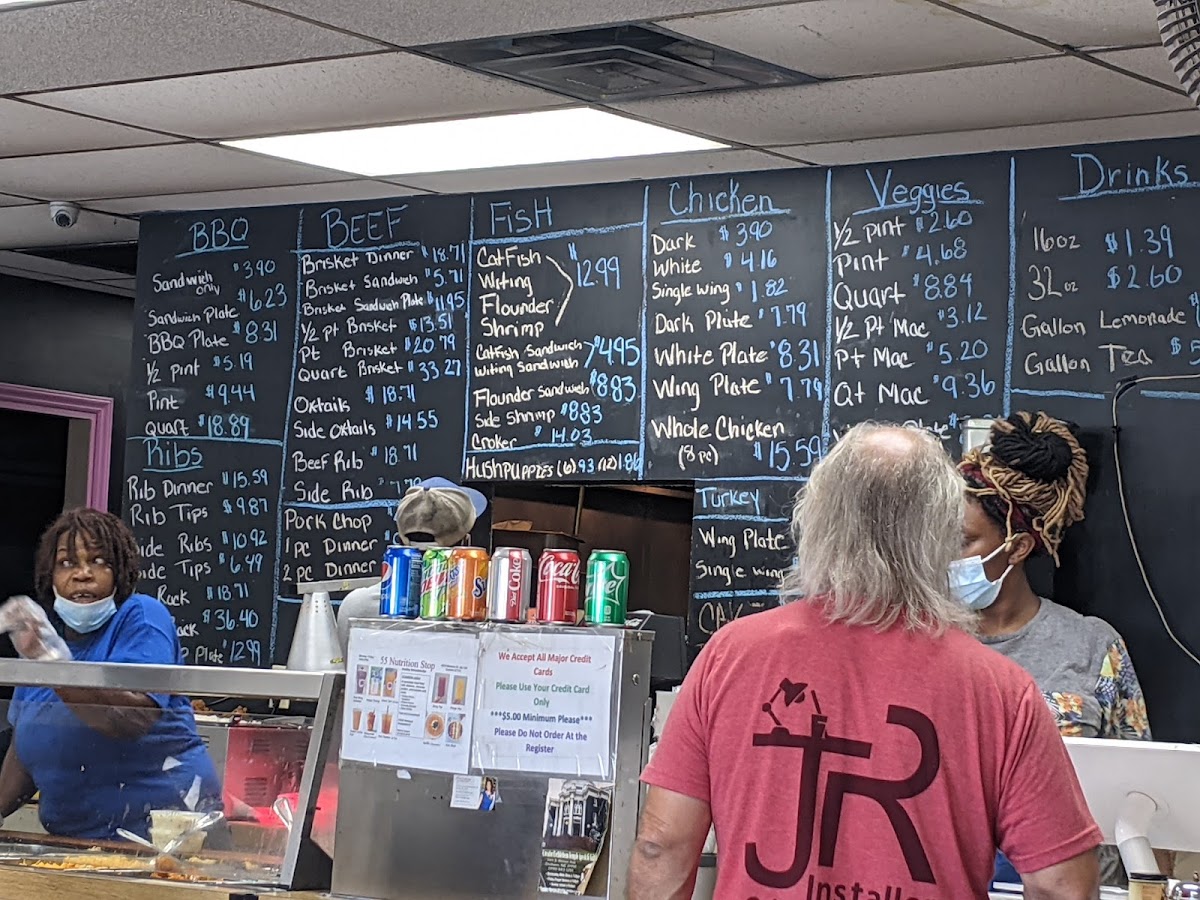 BBQ
Sandwich only $3.90
Sandwich Plate $6.23
BBQ Plate $8.31
1/2 pint $5.19
Pint $9.44
Quart $18.89
Ribs
Rib Dinner $15.59
Rib Tips $9.87
Side Ribs $10.92
Side Tips $6.49
Rack $18.71
$36.40
Plate 12.99
BEEF
Brisket Dinner $18.71
Brisket Sandwich $5.71
Brisket Sandwich Plate $11.95
1/2 pt Brisket $13.51
Pt Brisket $20.79
Quart Brisket $33.27
Oxtails $18.71
Side Oxtails $14.55
Beef Rib $18.71
Side Rib
Pork Chop
1 pc Dinner
2 pc Dinner
FisH
CatFish
Witing
Flounder
Shrimp
$12.99
CatFish Sandwich
Witing Sandwich
$4.95
Flounder Sandwich $8.83
Side Shrimp $8.83
Croker $14.03
Hushpuppies (6) .93 (12) 1.86
Chicken
Dark $3.90
White $4.16
Single Wing $1.82
Dark Plate $7.79
White Plate $8.31
Wing Plate $7.79
Whole Chicken
(8 pc) $15.59
Turkey
Wing Plate
Single wing
Veggies
1/2 pint $2.60
Pint $4.68
Quart $8.84
1/2 Pt Mac $3.12
Pt Mac $5.20
Qt Mac $9.36
Drinks
16oz $1.39
32oz $2.60
Gallon Lemonade
Gallon Tea $5
Diet Coke
Coca
55 Nutrition Stop
We Accept All Major Credit
Cards
Please Use Your Credit Card
Only
***$5.00 Minimum Please***
Please Do Not Order At the
Register
JR
Installe